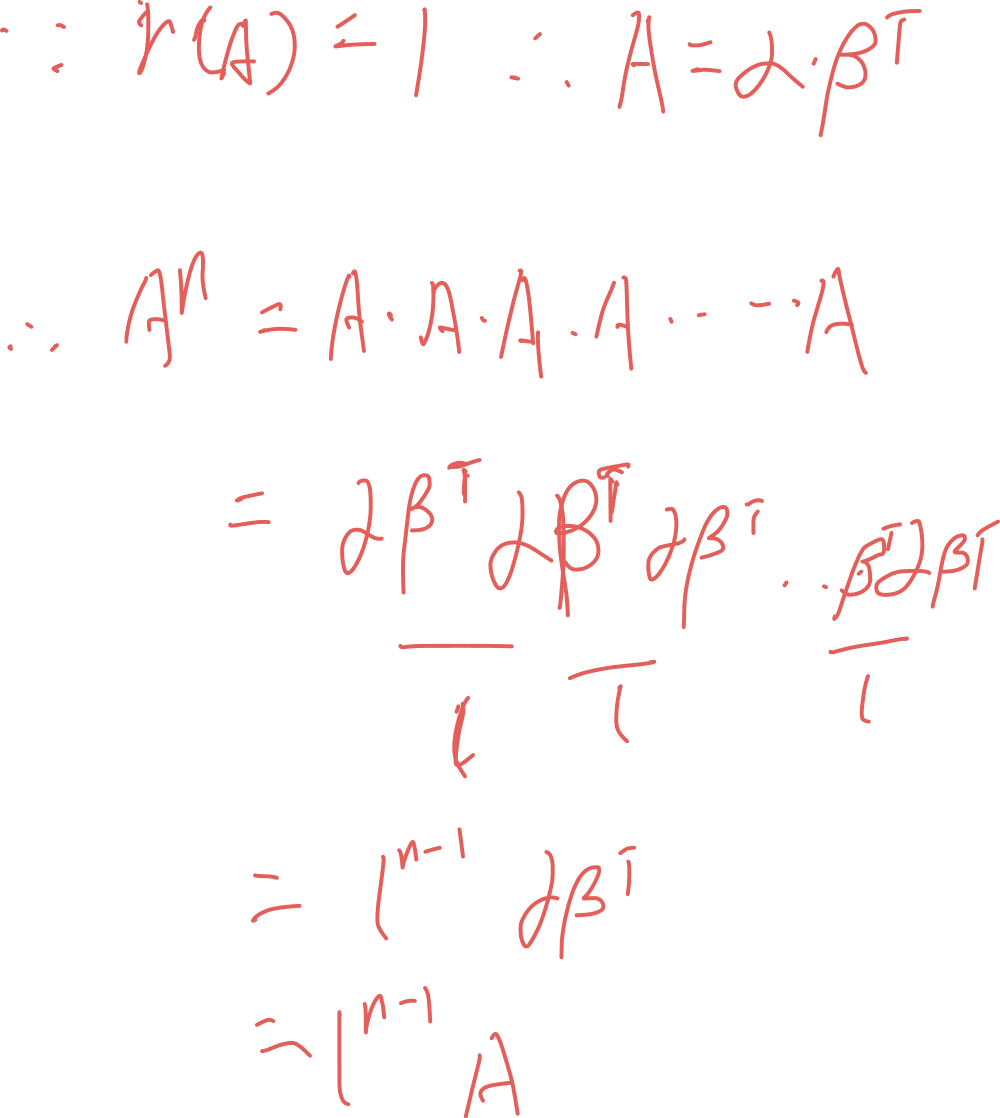 ∵ r(A) = 1 ∴ A = α·βᵀ
∴ Aⁿ = A·A·A·A·····A
= αβᵀαβᵀαβᵀ···βᵀαβᵀ
l l l
= lⁿ⁻¹ αβᵀ
= lⁿ⁻¹ A